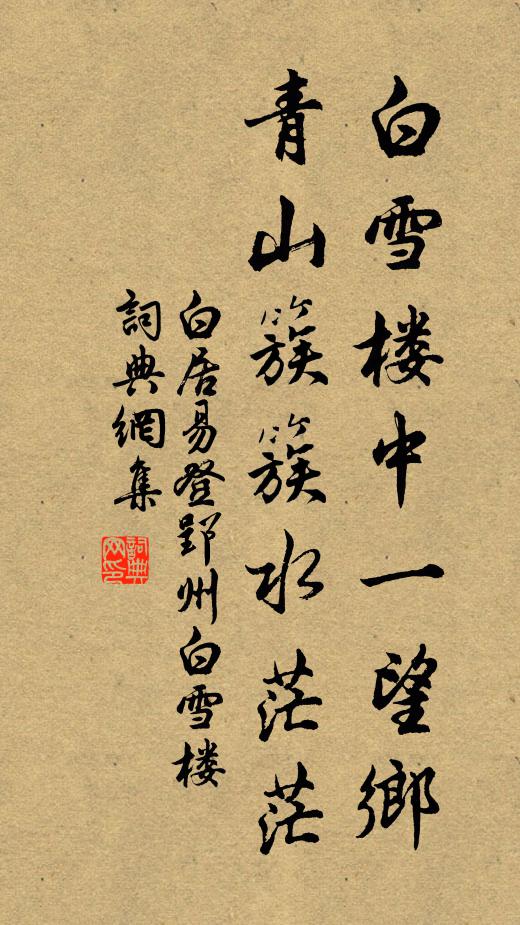 白雪楼中一望鄉
青山簇簇水茫茫
白居易登郢州白雪楼
詞典網集
詞典
网印